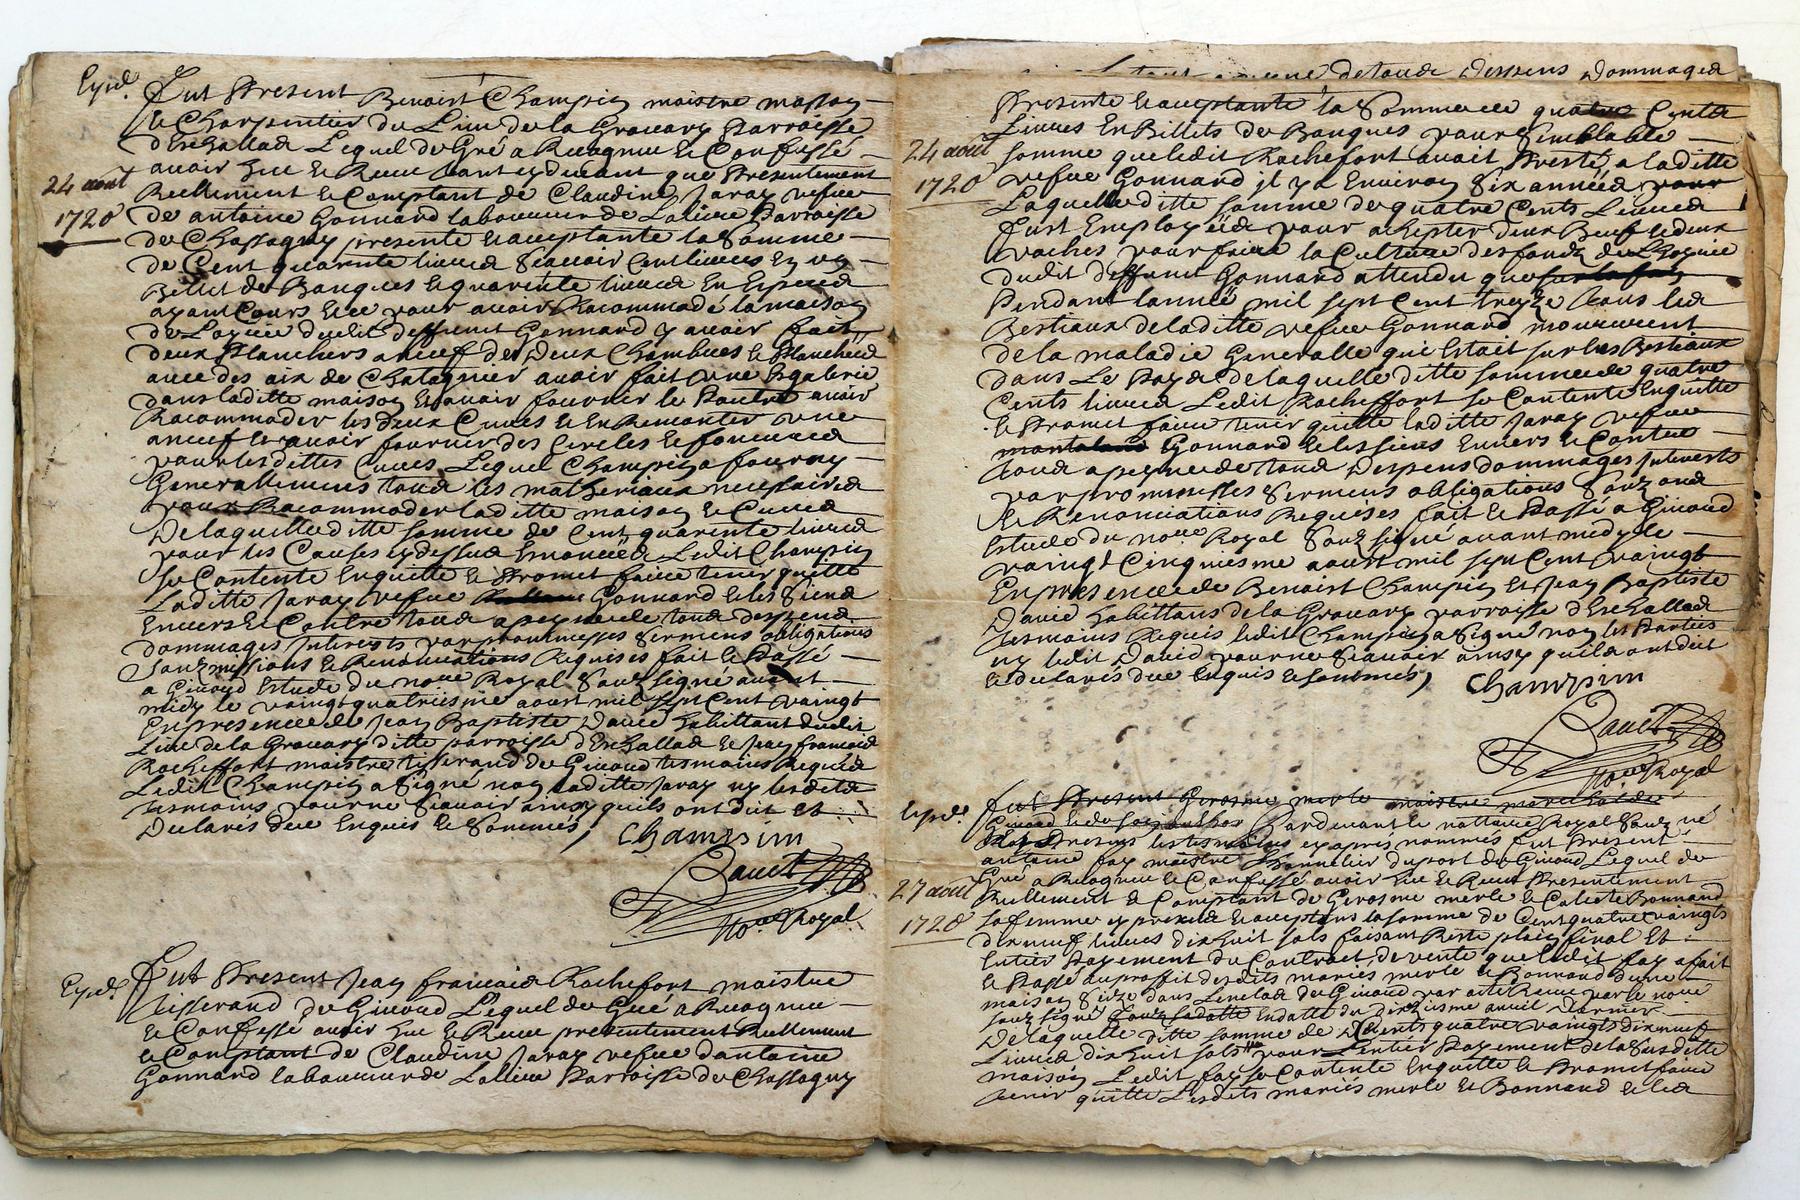 Expd.
Fut Present Benoist Champin maistre masson
& Charpentier du Lieu de la Grauary Parroisse
d'Eschallas Lequel de Gré a Recognu & Confessé
avoir heu & Receu avant ces devant que Presentement
24 aout
1720
Reellement & Comptant de Claudine Jaray vefue
de antoine Gonnard laboureur de Laliere Parroisse
de Chassagny presente & acceptante la Somme
de Cent quarente livres Scavoir Cent livres en un
Billet de Banques & quarente livres En Especes
ayant Cours & ce pour avoir Racommodé la maison
de Loyrie dudit deffunt Gonnard y avoir fait
deux Planchers a neuf des deux Chambres & Planchers
avec des aix de Chatagnier avoir fait une Egalerie
dans laditte maison & avoir fournier le Pautre avoir
Racommoder les deux Cuues & En Remonter une
aneuf & avoir fournier des Cercles & fonceures
pour lesdittes Cuues Lequel Champin a fourny
Generallement tous les matheriaux necessaires
pour Racommoder laditte maison & Cuues
De laquelle ditte somme de Cent quarente livres
pour les Causes cy dessus Enoncées Ledit Champin
se Contente En quitte & Promet faire tenir quitte
Laditte Jaray vefue Gonnard & les Siens
Envers & Contre tous a peyne de tous despens
dommages Interests par promesses Sermens obligations
Souzmissions & Renonciations Requises fait & Passé
a Giuord Estude du noue Royal Souz signé avant
midy le vaingt quatriesme aoust mil sept Cent vaingt
En presence de Jean Baptiste David habittant dudit
Lieu de la Grauary ditte parroisse d'Eschallas & Jean francois
Rocheffort maistre tisserand de Giuord tesmoins Requis
Ledit Champin a Signé non laditte Jaray ny lesdits
tesmoins pour ne Scavoir ainsy quils ont dit et
Declarés de ce Enquis & Sommés,
Champin
Dauid
Noue Royal
Expd.
Fut Present Jean francois Rochefort maistre
tisserand de Giuord Lequel de Gré a Recognu
& Confessé avoir heu & Receu presentement Reellement
& Comptant de Claudine Jaray vefue dantoine
Gonnard laboureur de Laliere Parroisse de Chassagny
de tous despens dommages
Presente & acceptante la Somme de quatre Cents
Livres En Billets de Banques pour Semblable
24 aout
1720
somme que ledit Rochefort avait Presté a laditte
vefue Gonnard il y a Environ Six années pour
Laquelle ditte somme de quatre Cents Livres
fust Employée pour achepter deux Beuf & deux
vaches pour faire la Culture des fonds de Lhoyrie
dudit deffunt Gonnard attendu que
Pendant lannée mil sept Cent treyze tous les
Bestiaux de laditte vefue Gonnard moururent
de la maladie Generalle qui Estait sur les Bestiaux
dans Le Pays de laquelle ditte somme de quatre
Cents livres Ledit Rocheffort se Contente En quitte
& Promet faire tenir quitte laditte Jaray vefue
Gonnard & les siens Envers & Contre
tous a peyne de tous Despens dommages Interests
par promesses Sermens obligations
& Renonciations Requises fait & Passé a Giuord
Estude du noue Royal Souz signé avant midy le
vaingt Cinquiesme aoust mil sept Cent vaingt
En presence de Benoist Champin & Jean Baptiste
David habittans de la Grauary parroisse d'Eschallas
tesmoins Requis ledit Champin a Signé non les Parties
ny ledit David pour ne Scavoir ainsy quils ont dit
& declarés de ce Enquis & Sommés,
Champin
Dauid
Noue Royal
Expd.
fut Present Gerosme merle maistre mareschal de
Giuord Pardevant le nottaire Royal Souz né
Presens les tesmoins cy apres nommés fut Present
antoine fay maistre Thonnelier du port de Giuord Lequel de
27 aout
1720
Gré a Recognu & Confessé avoir heu & Receu Presentement
Reellement & Comptant de Gerosme merle & Bonnand
sa femme cy presens & acceptans la somme de Cent quatre vaingts
dix neuf livres dix huit sols faisant Reste plain final Et
Entier Payement du Contract de vente que ledit fay a fait
& Passé au proffit desdits mariés merle & Bonnand dune
maison Size dans Lenclos de Giuord par acte Receu par le noue
souz signé En datte du dixiesme avril dernier
De laquelle ditte somme de Cents quatre vaingts dix neuf
Livres dix huit sols pour Lentier Payement de la Susditte
maison Ledit fay se Contente En quitte & Promet faire
tenir quitte Lesdits mariés merle & Bonnand & les